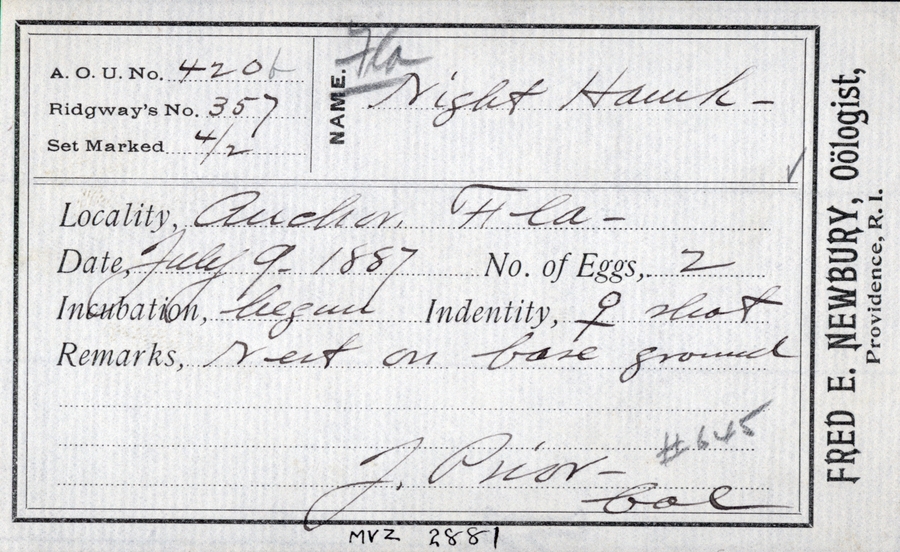 A. O. U. No. 420b
Ridgway's No. 357
Set Marked 4/2
NAME. Fla
Night Hawk -
Locality, Anchor, Fla -
Date, July 9 - 1887 No. of Eggs, 2
Incubation, begun Indentity, ♀ shot
Remarks, Nest on bare ground
#645
J. Prior -
Col
FRED E. NEWBURY, Oölogist,
Providence, R. I.
MVZ 2881